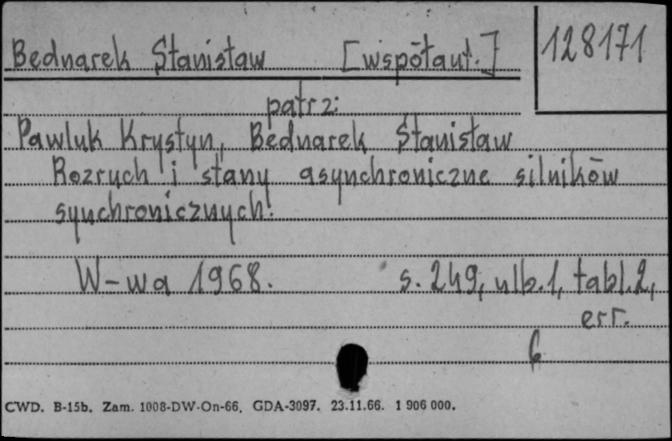 Bednarek Stanisław [współaut.] 128171
patrz:
Pawluk Krystyn, Bednarek Stanisław
Rozruch i stany asynchroniczne silników
synchronicznych.
W-wa 1968. s. 249, ulb. 1, tabl. 2,
err.
6
CWD. B-15b. Zam. 1008-DW-On-66. GDA-3097. 23.11.66. 1 906 000.